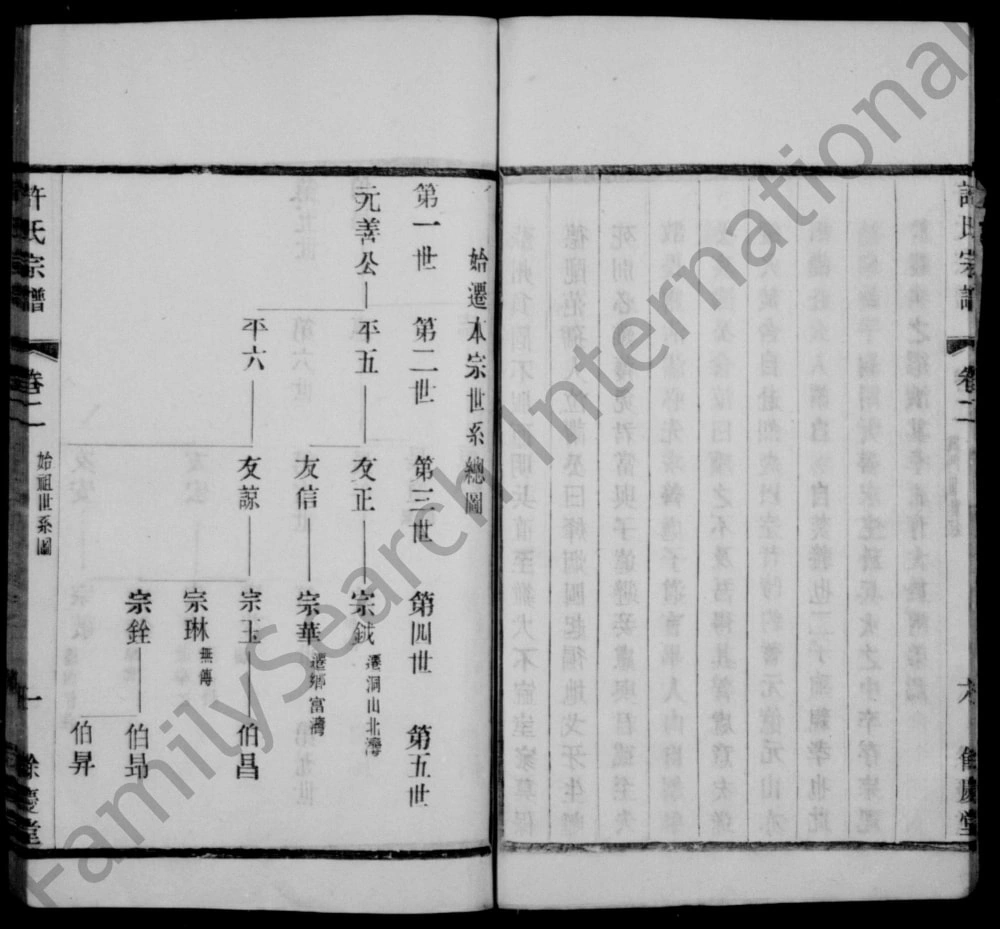 許氏宗譜
卷二
六
餘慶堂
始遷本宗世系總圖
第一世 第二世 第三世 第四世 第五世
元善公 平五 友正 宗鉞 遷洞山北灣
友信 宗華 遷鄉富灣
平六 友諒 宗玉 伯昌
宗琳 無傳
宗銓 伯昂
伯昇
許氏宗譜
卷二
始祖世系圖
一
餘慶堂
FamilySearch International